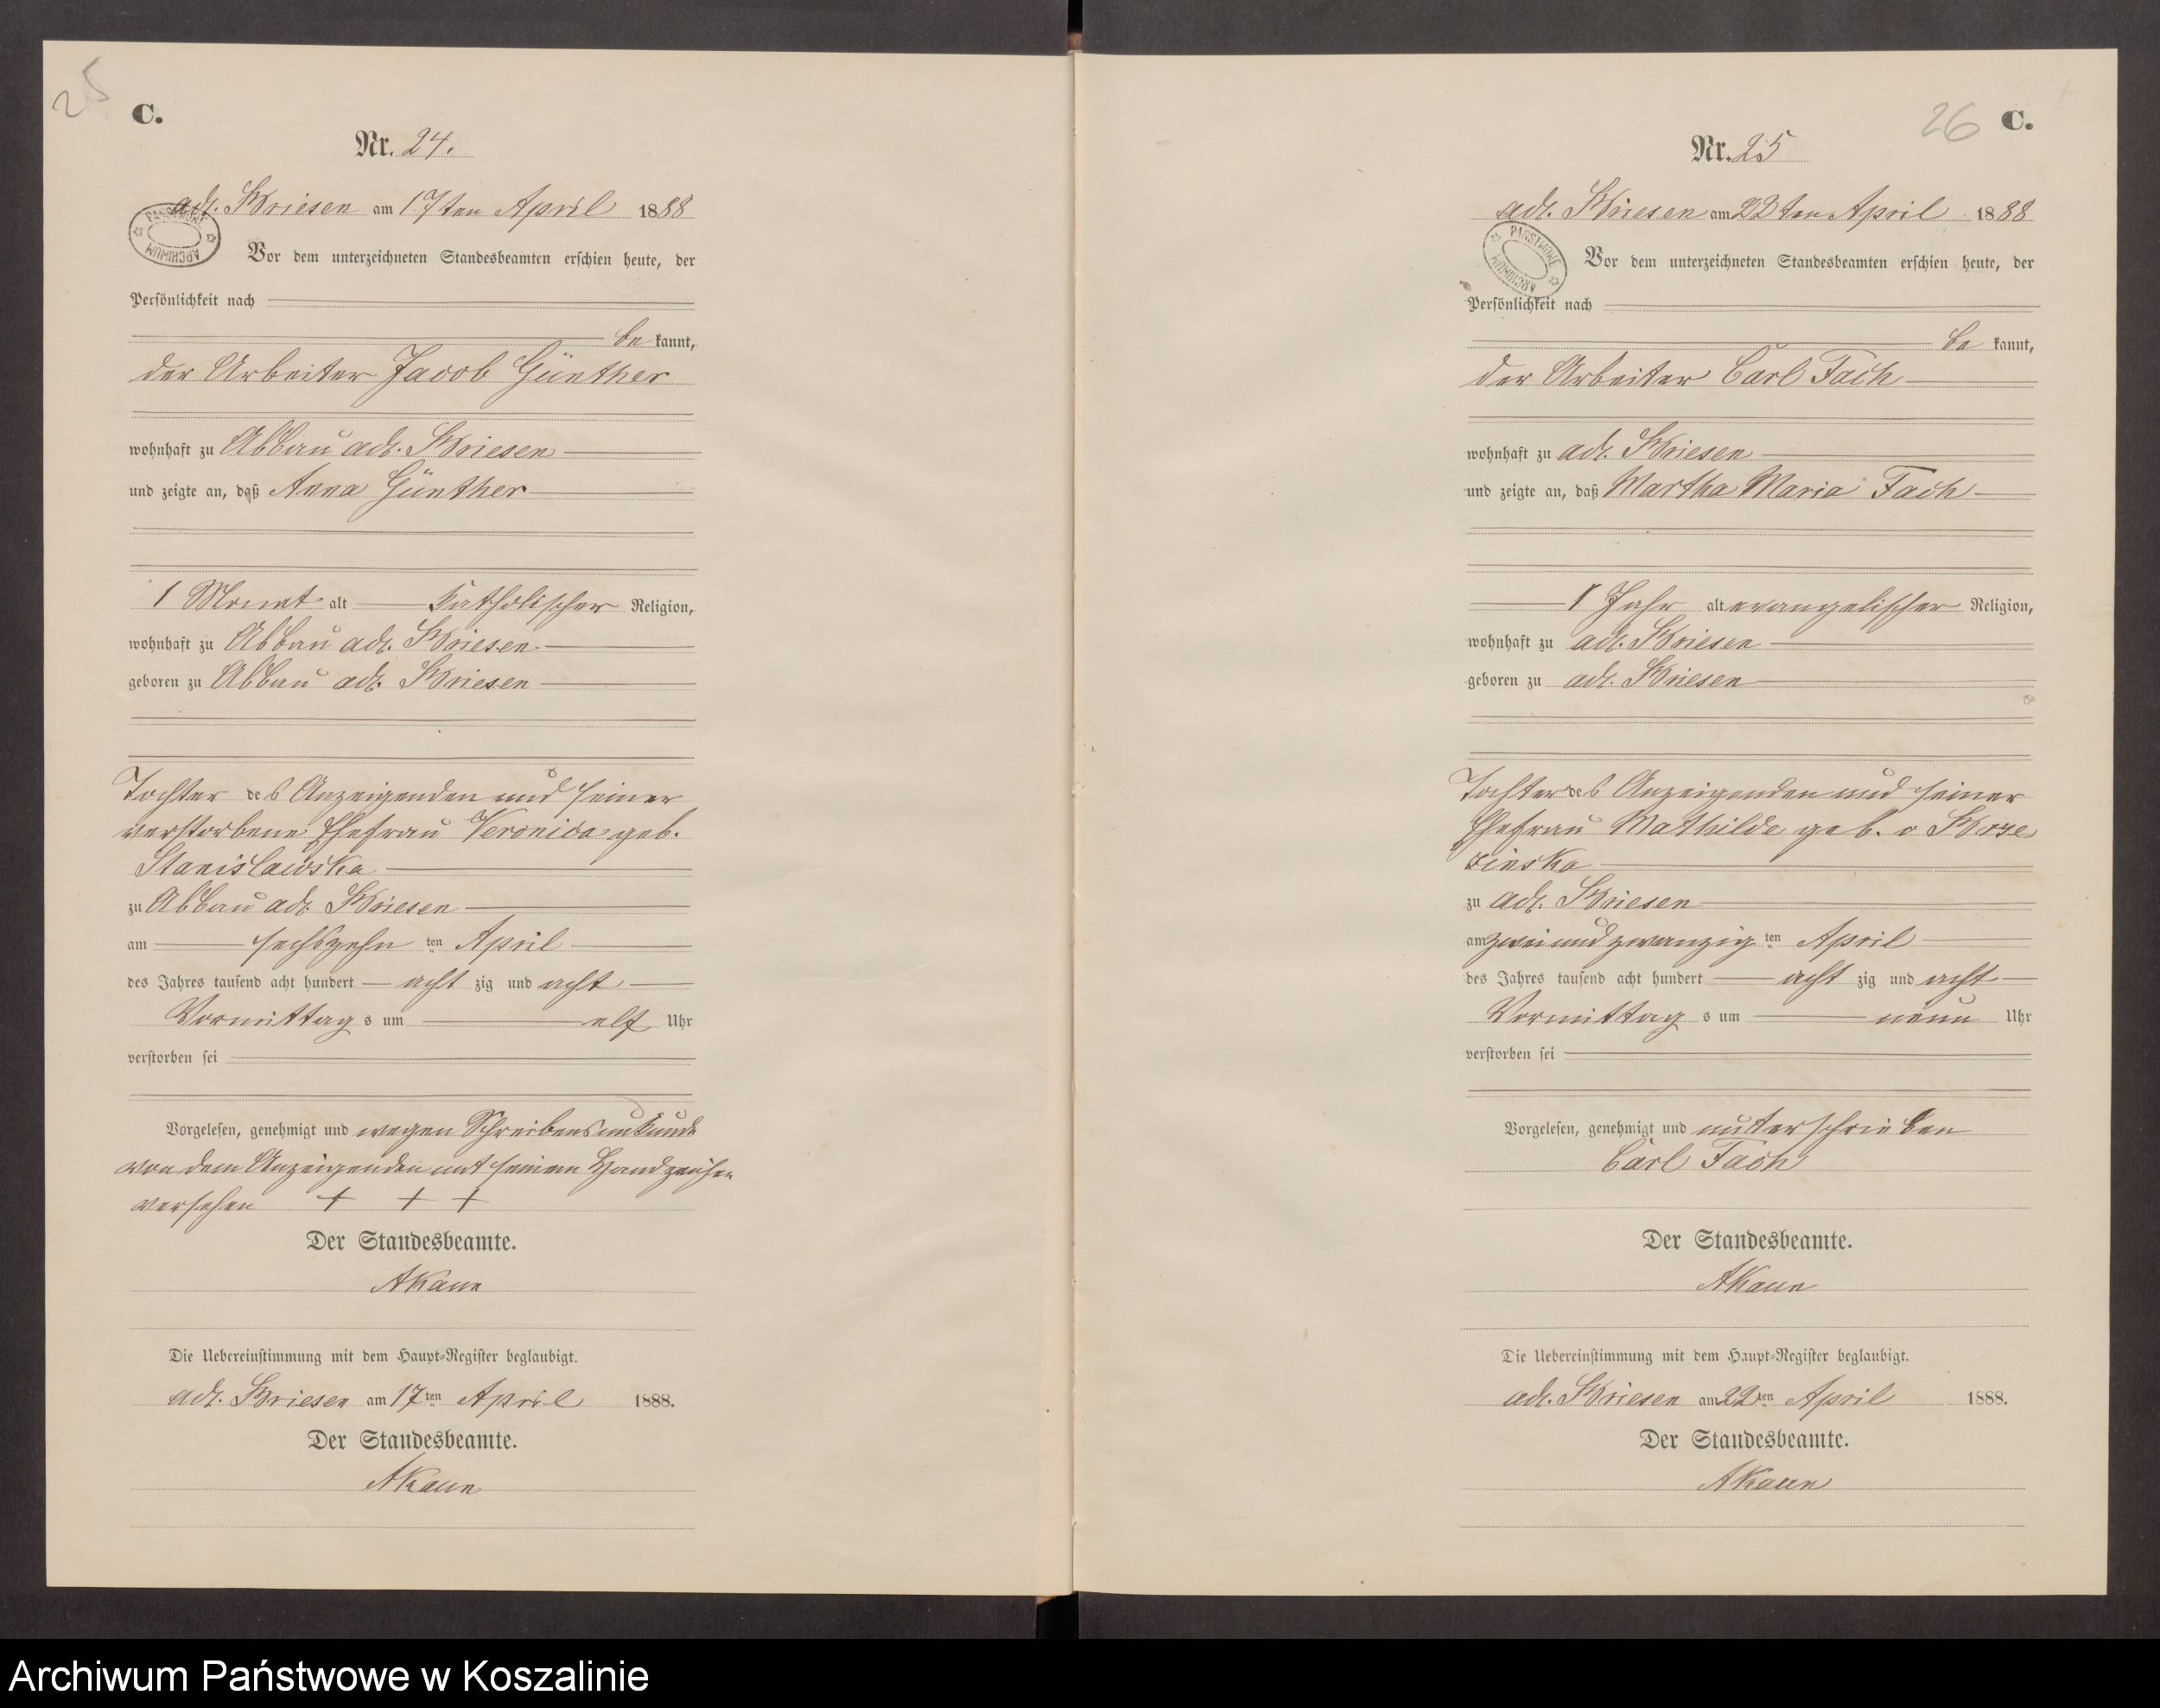 25
C.
Nr. 24.
adl. Briesen am 17ten April 1888
PAŃSTWOWE ARCHIWUM
Vor dem unterzeichneten Standesbeamten erschien heute, der
Persönlichkeit nach
be kannt,
der Arbeiter Jacob Günther
wohnhaft zu Abbau adl. Briesen
und zeigte an, daß Anna Günther
1 Monat alt katholischer Religion,
wohnhaft zu Abbau adl. Briesen
geboren zu Abbau adl. Briesen
Tochter des Anzeigenden und seiner
verstorbene Ehefrau Veronica geb.
Stanislawska
zu Abbau adl. Briesen
am sechszehn ten April
des Jahres tausend acht hundert acht zig und acht
Vormittag s um elf Uhr
verstorben sei
Vorgelesen, genehmigt und wegen Schreibensunkunde
von dem Anzeigenden mit seinem Handzeichen
versehen + + +
Der Standesbeamte.
AKaun
Die Uebereinstimmung mit dem Haupt-Register beglaubigt.
adl. Briesen am 17ten April 1888.
Der Standesbeamte.
AKaun
26
C.
Nr. 25
adl. Briesen am 22ten April 1888
PAŃSTWOWE ARCHIWUM
Vor dem unterzeichneten Standesbeamten erschien heute, der
Persönlichkeit nach
be kannt,
der Arbeiter Carl Fach
wohnhaft zu adl. Briesen
und zeigte an, daß Martha Maria Fach
1 Jahr alt evangelischer Religion,
wohnhaft zu adl. Briesen
geboren zu adl. Briesen
Tochter des Anzeigenden und seiner
Ehefrau Mathilde geb. v
zinska
zu adl. Briesen
am zwei und zwanzig ten April
des Jahres tausend acht hundert acht zig und acht
Vormittag s um neun Uhr
verstorben sei
Vorgelesen, genehmigt und unterschrieben
Carl Fach
Der Standesbeamte.
AKaun
Die Uebereinstimmung mit dem Haupt-Register beglaubigt.
adl. Briesen am 22ten April 1888.
Der Standesbeamte.
AKaun
Archiwum Państwowe w Koszalinie